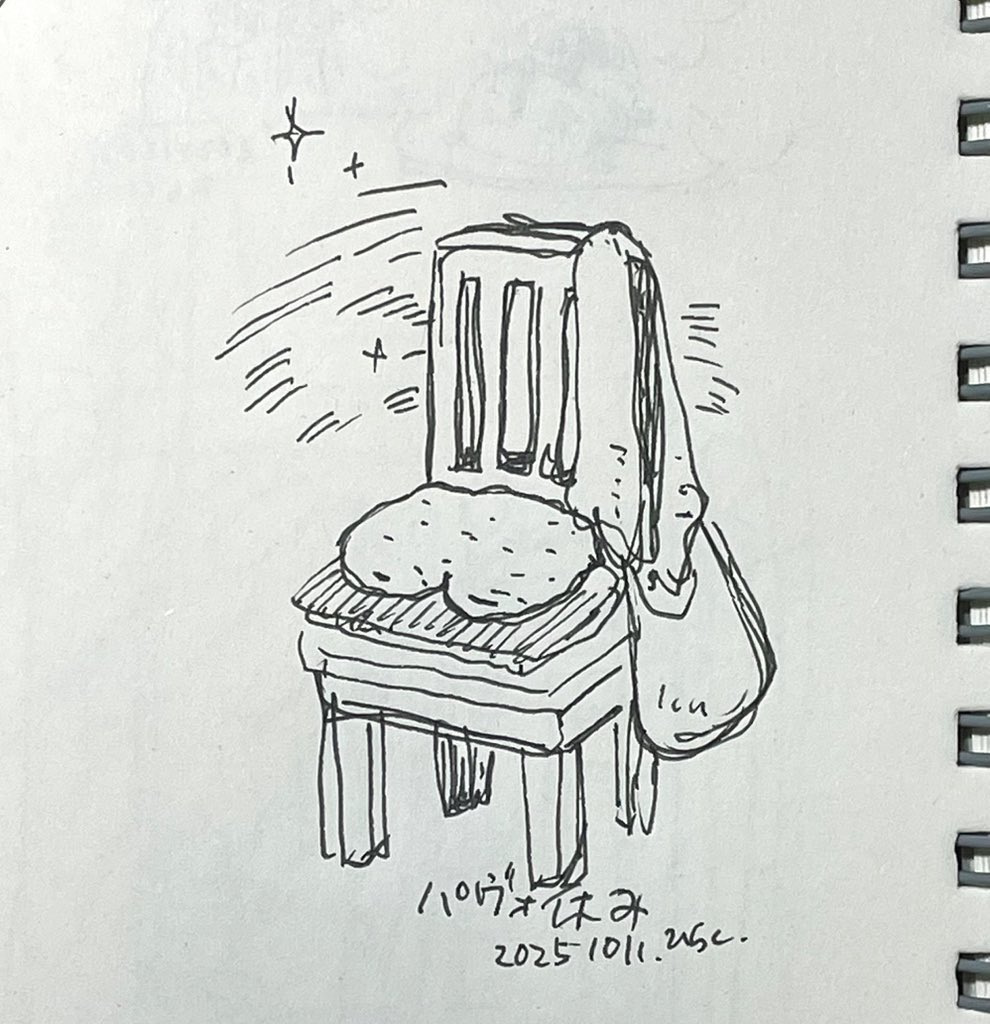 パヴォ休み
2025 1011.